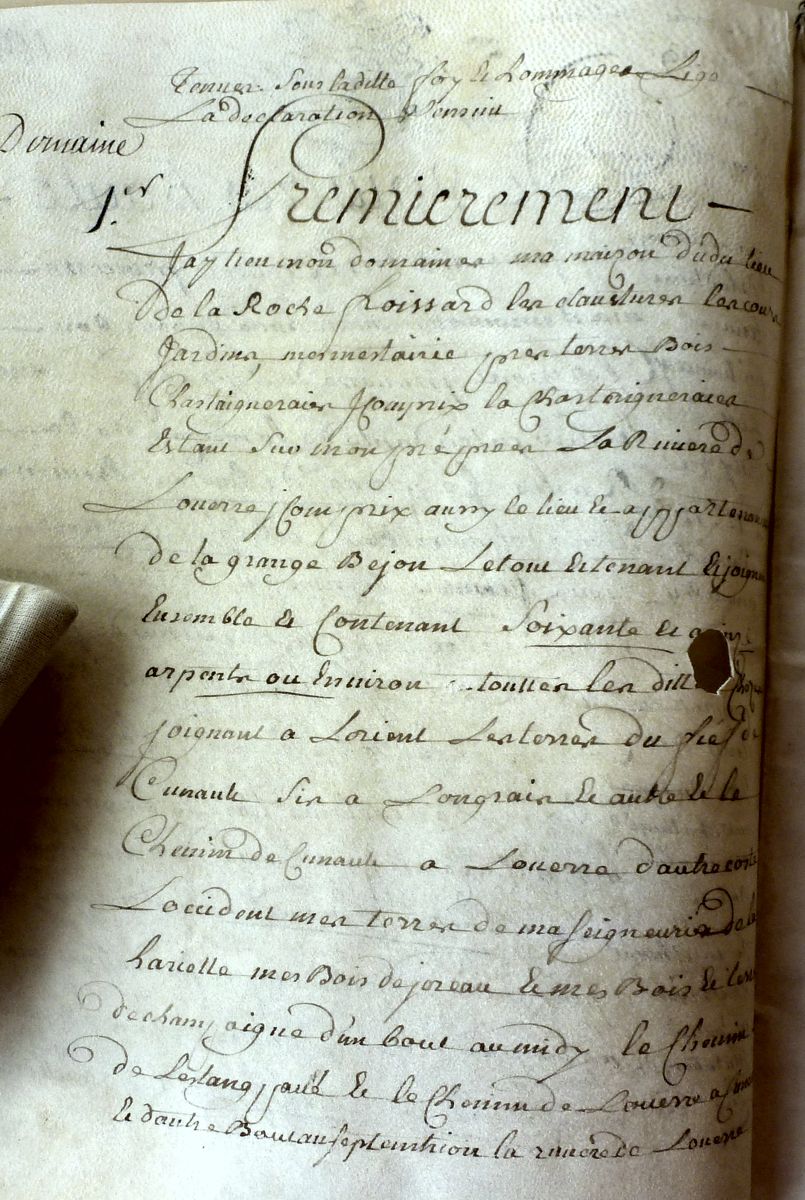 Tenues sous ladite foy & hommage Lige
La declaration s'ensuit
Domaine
1.er Premierement –
Jay tien mon domaine ma maizon dudit lieu
de la Roche Froissard les claustures les cours
Jardins, mesmestairie pres terres Bois
Chastaigneraies Jcomprix la Chastaigneraies
Estant sur mon pré pres La Riviere de
Louerre jComprix aussy le lieu & appartenan
de la grange Bejou Le tout Estenant & joign
Ensemble & Contenant Soixante &
arpents ou Environ touttes les ditt
joignant a Lorient Les terres du fief de
Cunault sis a Longrais & autre & le
Chemin de Cunault a Louerre d'autre costé
Loccident mes terres de ma seigneurie de la
harielle mes Bois de joreau & mes Bois &
de champaigne d'un bout au midy le Chemin
de Lestang & le Chemin de Louerre a
& d'autre Bout au septentrion la riviere de Louerre